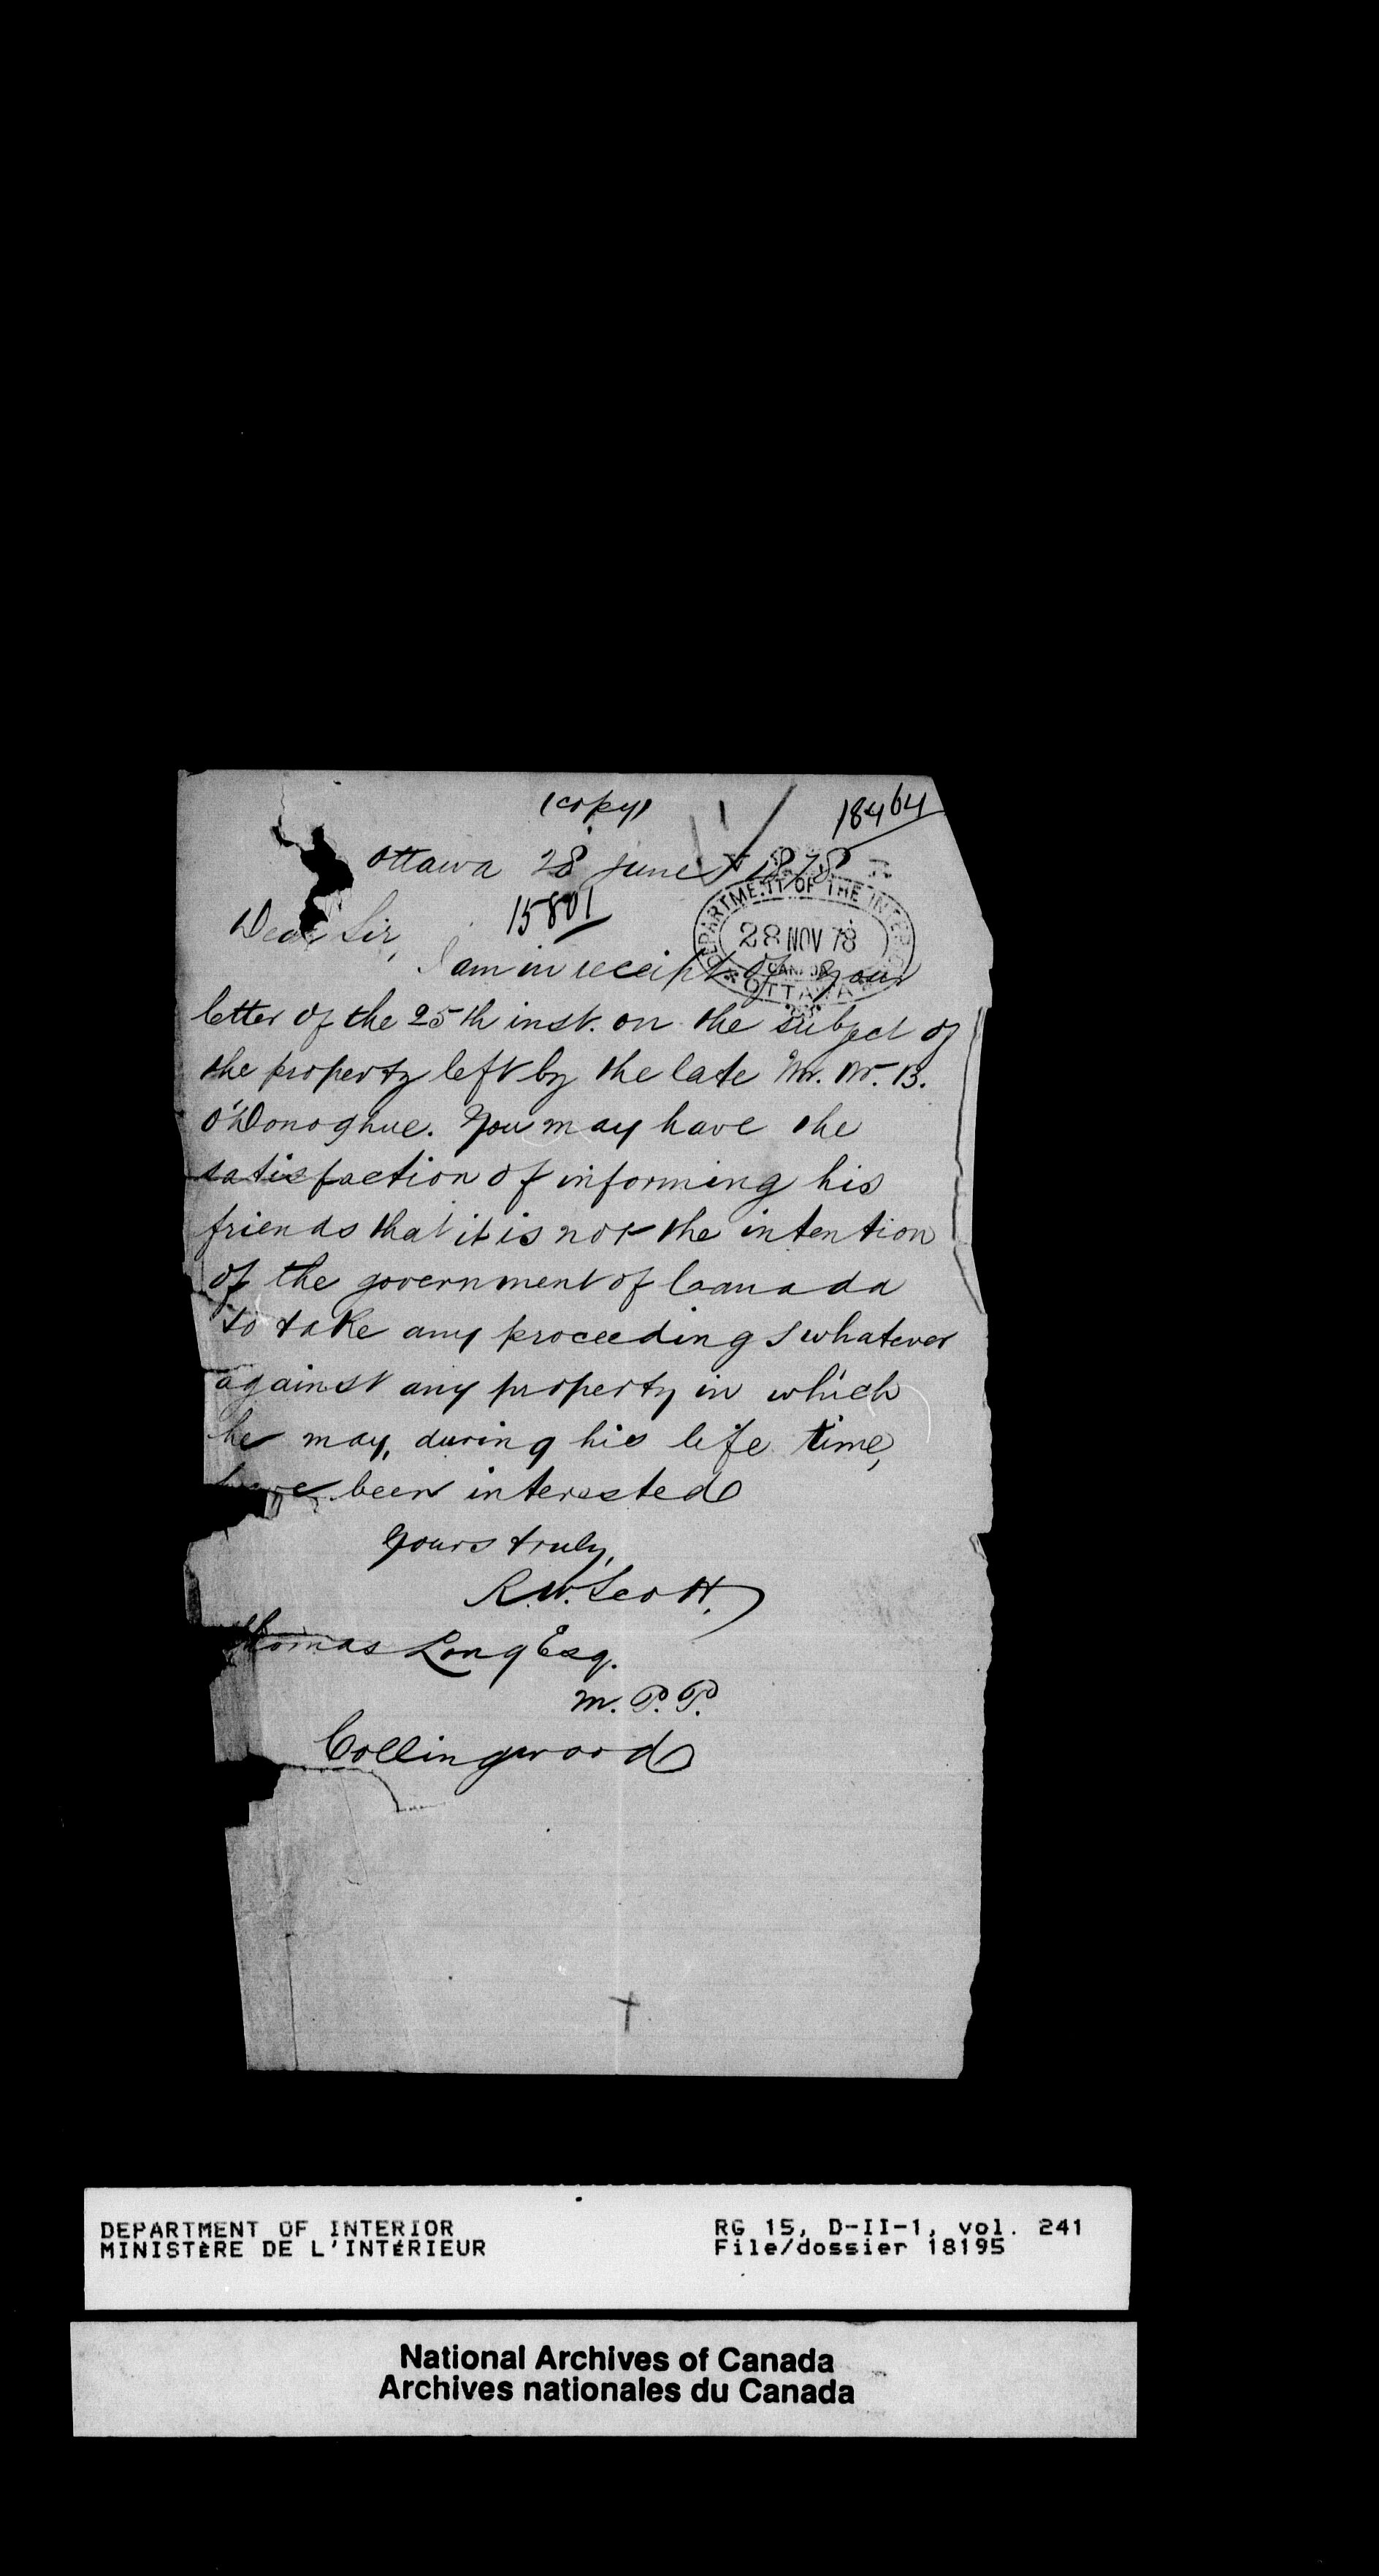 (copy)
18464
Ottawa 28 June 1878
15801
DEPARTMENT OF THE INTERIOR
28 NOV 78
CANADA
OTTAWA
Dear Sir,
I am in receipt of your
letter of the 25th inst. on the subject of
the property left by the late Mr. W. B.
O'Donoghue. You may have the
satisfaction of informing his
friends that it is not the intention
of the government of Canada
to take any proceedings whatever
against any property in which
he may, during his life time,
have been interested
Yours truly,
R. W. Scott.
Thomas Long Esq.
M. P. P.
Collingwood
DEPARTMENT OF INTERIOR
MINISTÈRE DE L'INTÉRIEUR
RG 15, D-II-1, vol. 241
File/dossier 18195
National Archives of Canada
Archives nationales du Canada